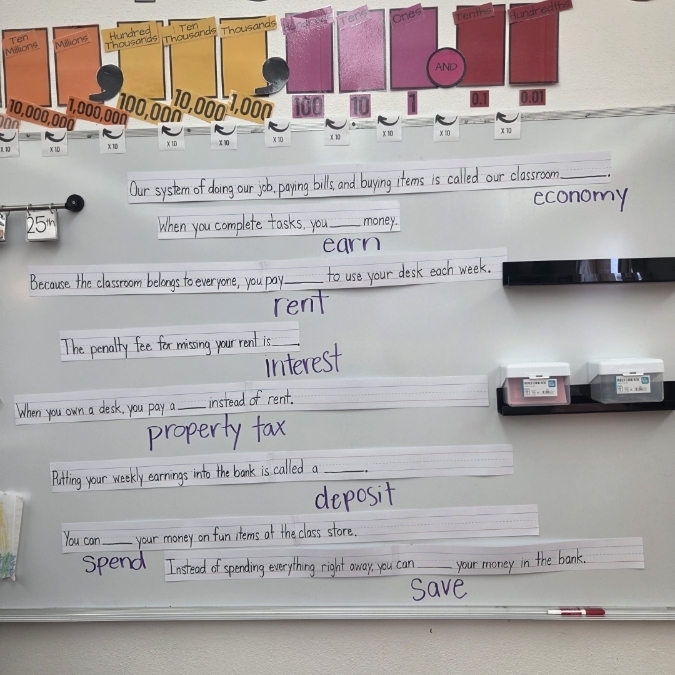 Ten Millions
Millions
Hundred Thousands
Ten Thousands
Thousands
Hundreds
Tens
Ones
AND
Tenths
Hundredths
10,000,000
1,000,000
100,000
10,000
1,000
100
10
1
0.1
0.01
X 10
X 10
X 10
X 10
X 10
X 10
X 10
X 10
X 10
Our system of doing our job, paying bills, and buying items is called our classroom_____.
economy
25th
When you complete tasks, you____ money.
earn
Because the classroom belongs to everyone, you pay_____ to use your desk each week.
rent
The penalty fee for missing your rent is____.
interest
When you own a desk, you pay a ____ instead of rent.
property tax
Putting your weekly earnings into the bank is called a _____.
deposit
You can ____ your money on fun items at the class store.
spend
Instead of spending everything right away, you can _____ your money in the bank.
save